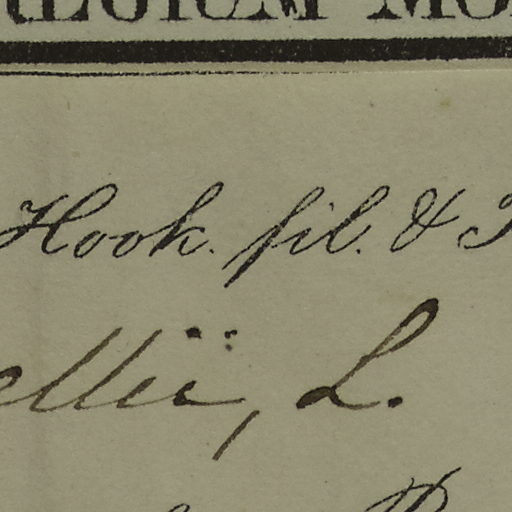 Hook. fil. & T
ellii, L.